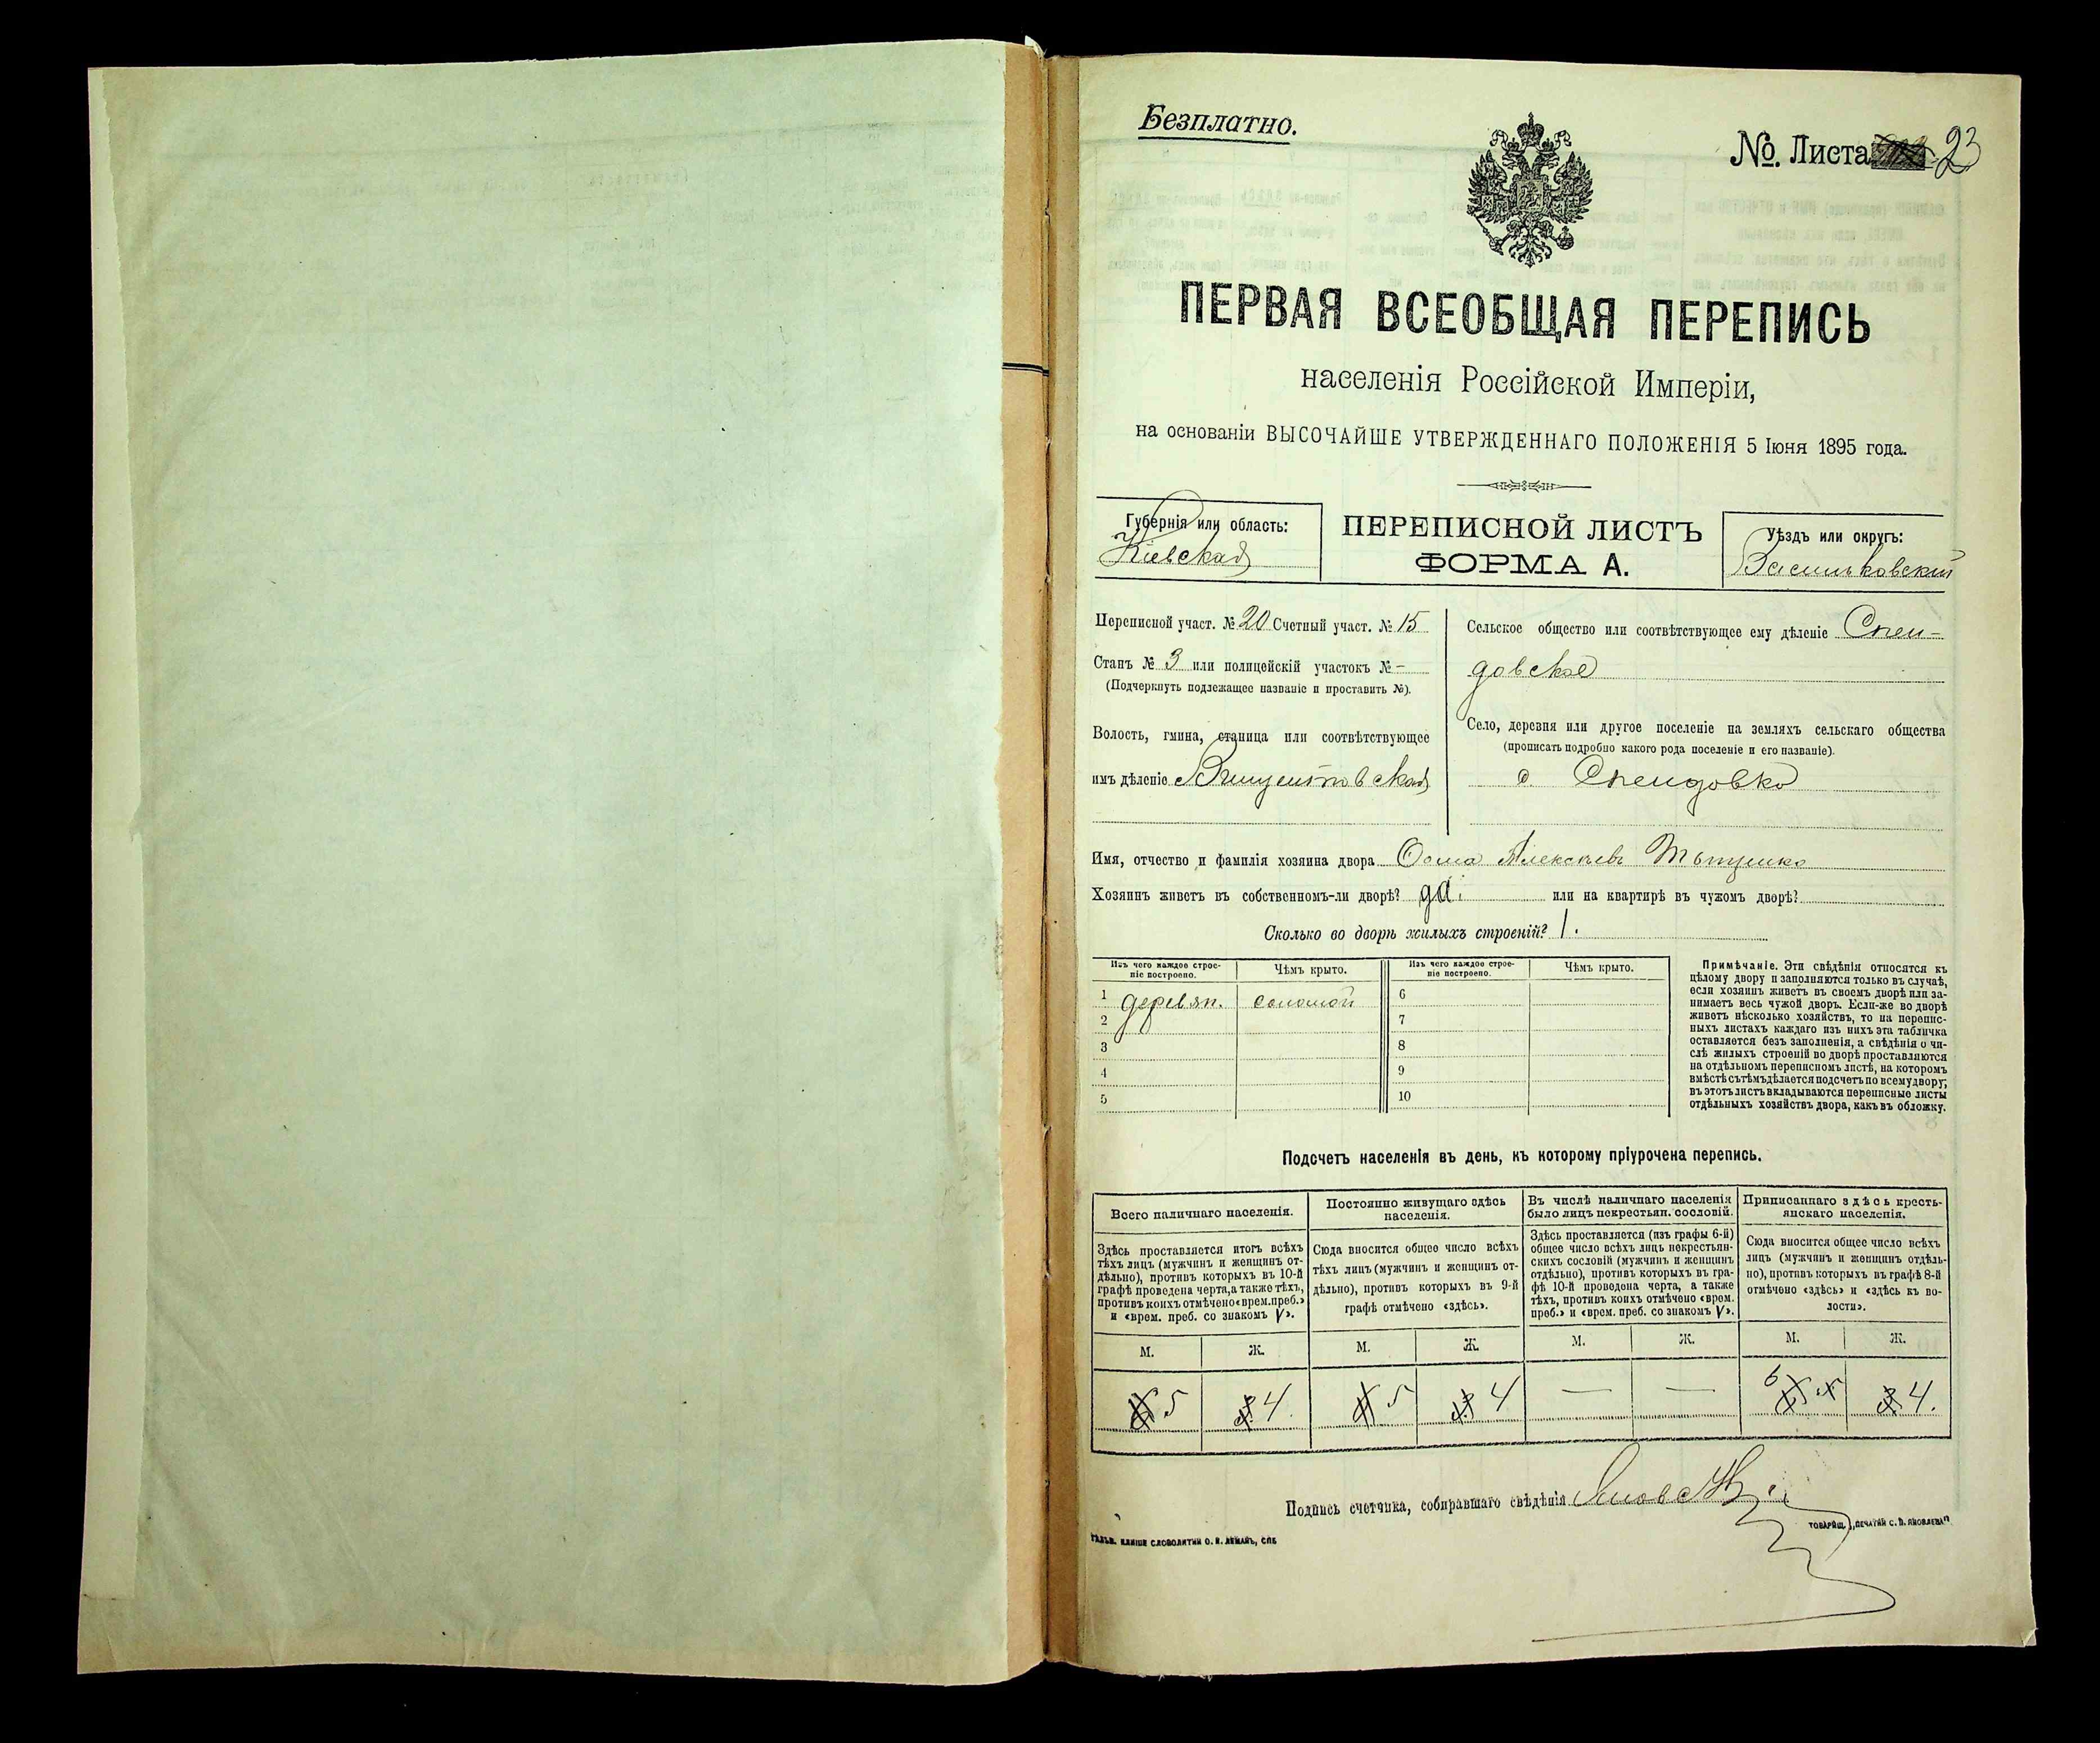 Безплатно.
№. Листа 23
ПЕРВАЯ ВСЕОБЩАЯ ПЕРЕПИСЬ
населенія Россійской Имперіи,
на основаніи ВЫСОЧАЙШЕ УТВЕРЖДЕННАГО ПОЛОЖЕНІЯ 5 Іюня 1895 года.
Губернія или область:
Кіевская
ПЕРЕПИСНОЙ ЛИСТЪ
ФОРМА А.
Уѣздъ или округъ:
Васильковскій
Переписной участ. № 20 Счетный участ. № 15
Станъ № 3 или полицейскій участокъ № –
(Подчеркнуть подлежащее названіе и проставить №).
Волость, гмина, станица или соотвѣтствующее
имъ дѣленіе
Сельское общество или соотвѣтствующее ему дѣленіе Спен-
довское
Село, деревня или другое поселеніе на земляхъ сельскаго общества
(прописать подробно какого рода поселеніе и его названіе).
с. Спендовка
Имя, отчество и фамилія хозяина двора Ѳома Алексѣевъ
Хозяинъ живетъ въ собственномъ-ли дворѣ? да. или на квартирѣ въ чужомъ дворѣ?
Сколько во дворѣ жилыхъ строеній? 1.
Изъ чего каждое строе-
ніе построено.
Чѣмъ крыто.
Изъ чего каждое строе-
ніе построено.
Чѣмъ крыто.
1 деревян. соломой
2
3
4
5
6
7
8
9
10
Примѣчаніе. Эти свѣдѣнія относятся къ
цѣлому двору и заполняются только въ случаѣ,
если хозяинъ живетъ въ своемъ дворѣ или за-
нимаетъ весь чужой дворъ. Если-же во дворѣ
живетъ нѣсколько хозяйствъ, то на перепис-
ныхъ листахъ каждаго изъ нихъ эта табличка
оставляется безъ заполненія, а свѣдѣнія о чи-
слѣ жилыхъ строеній во дворѣ проставляются
на отдѣльномъ переписномъ листѣ, на которомъ
вмѣстѣ съ тѣмъ дѣлается подсчетъ по всему двору;
въ этотъ листъ вкладываются переписные листы
отдѣльныхъ хозяйствъ двора, какъ въ обложку.
Подсчетъ населенія въ день, къ которому пріурочена перепись.
Всего наличнаго населенія.
Здѣсь проставляется итогъ всѣхъ
тѣхъ лицъ (мужчинъ и женщинъ от-
дѣльно), противъ которыхъ въ 10-й
графѣ проведена черта, а также тѣхъ,
противъ коихъ отмѣчено «врем. преб.»
и «врем. преб. со знакомъ V».
Постоянно живущаго здѣсь
населенія.
Сюда вносится общее число всѣхъ
тѣхъ лицъ (мужчинъ и женщинъ от-
дѣльно), противъ которыхъ въ 9-й
графѣ отмѣчено «здѣсь».
Въ числѣ наличнаго населенія
было лицъ некрестьян. сословій.
Здѣсь проставляется (изъ графы 6-й)
общее число всѣхъ лицъ некрестьян-
скихъ сословій (мужчинъ и женщинъ
отдѣльно), противъ которыхъ въ гра-
фѣ 10-й проведена черта, а также
тѣхъ, противъ коихъ отмѣчено «врем.
преб.» и «врем. преб. со знакомъ V».
Приписаннаго здѣсь кресть-
янскаго населенія.
Сюда вносится общее число всѣхъ
лицъ (мужчинъ и женщинъ отдѣль-
но), противъ которыхъ въ графѣ 8-й
отмѣчено «здѣсь» и «здѣсь къ во-
лости».
М. Ж. М. Ж. М. Ж. М. Ж.
5 4. 5 4 — — 6 4.
Подпись счетчика, собиравшаго свѣдѣнія
ГАЛЬВ. КЛИШЕ СЛОВОЛИТНИ О. И. ЛЕМАНЪ, СПБ
ТОВАРИЩ. „ПЕЧАТНИ С. П. ЯКОВЛЕВА"